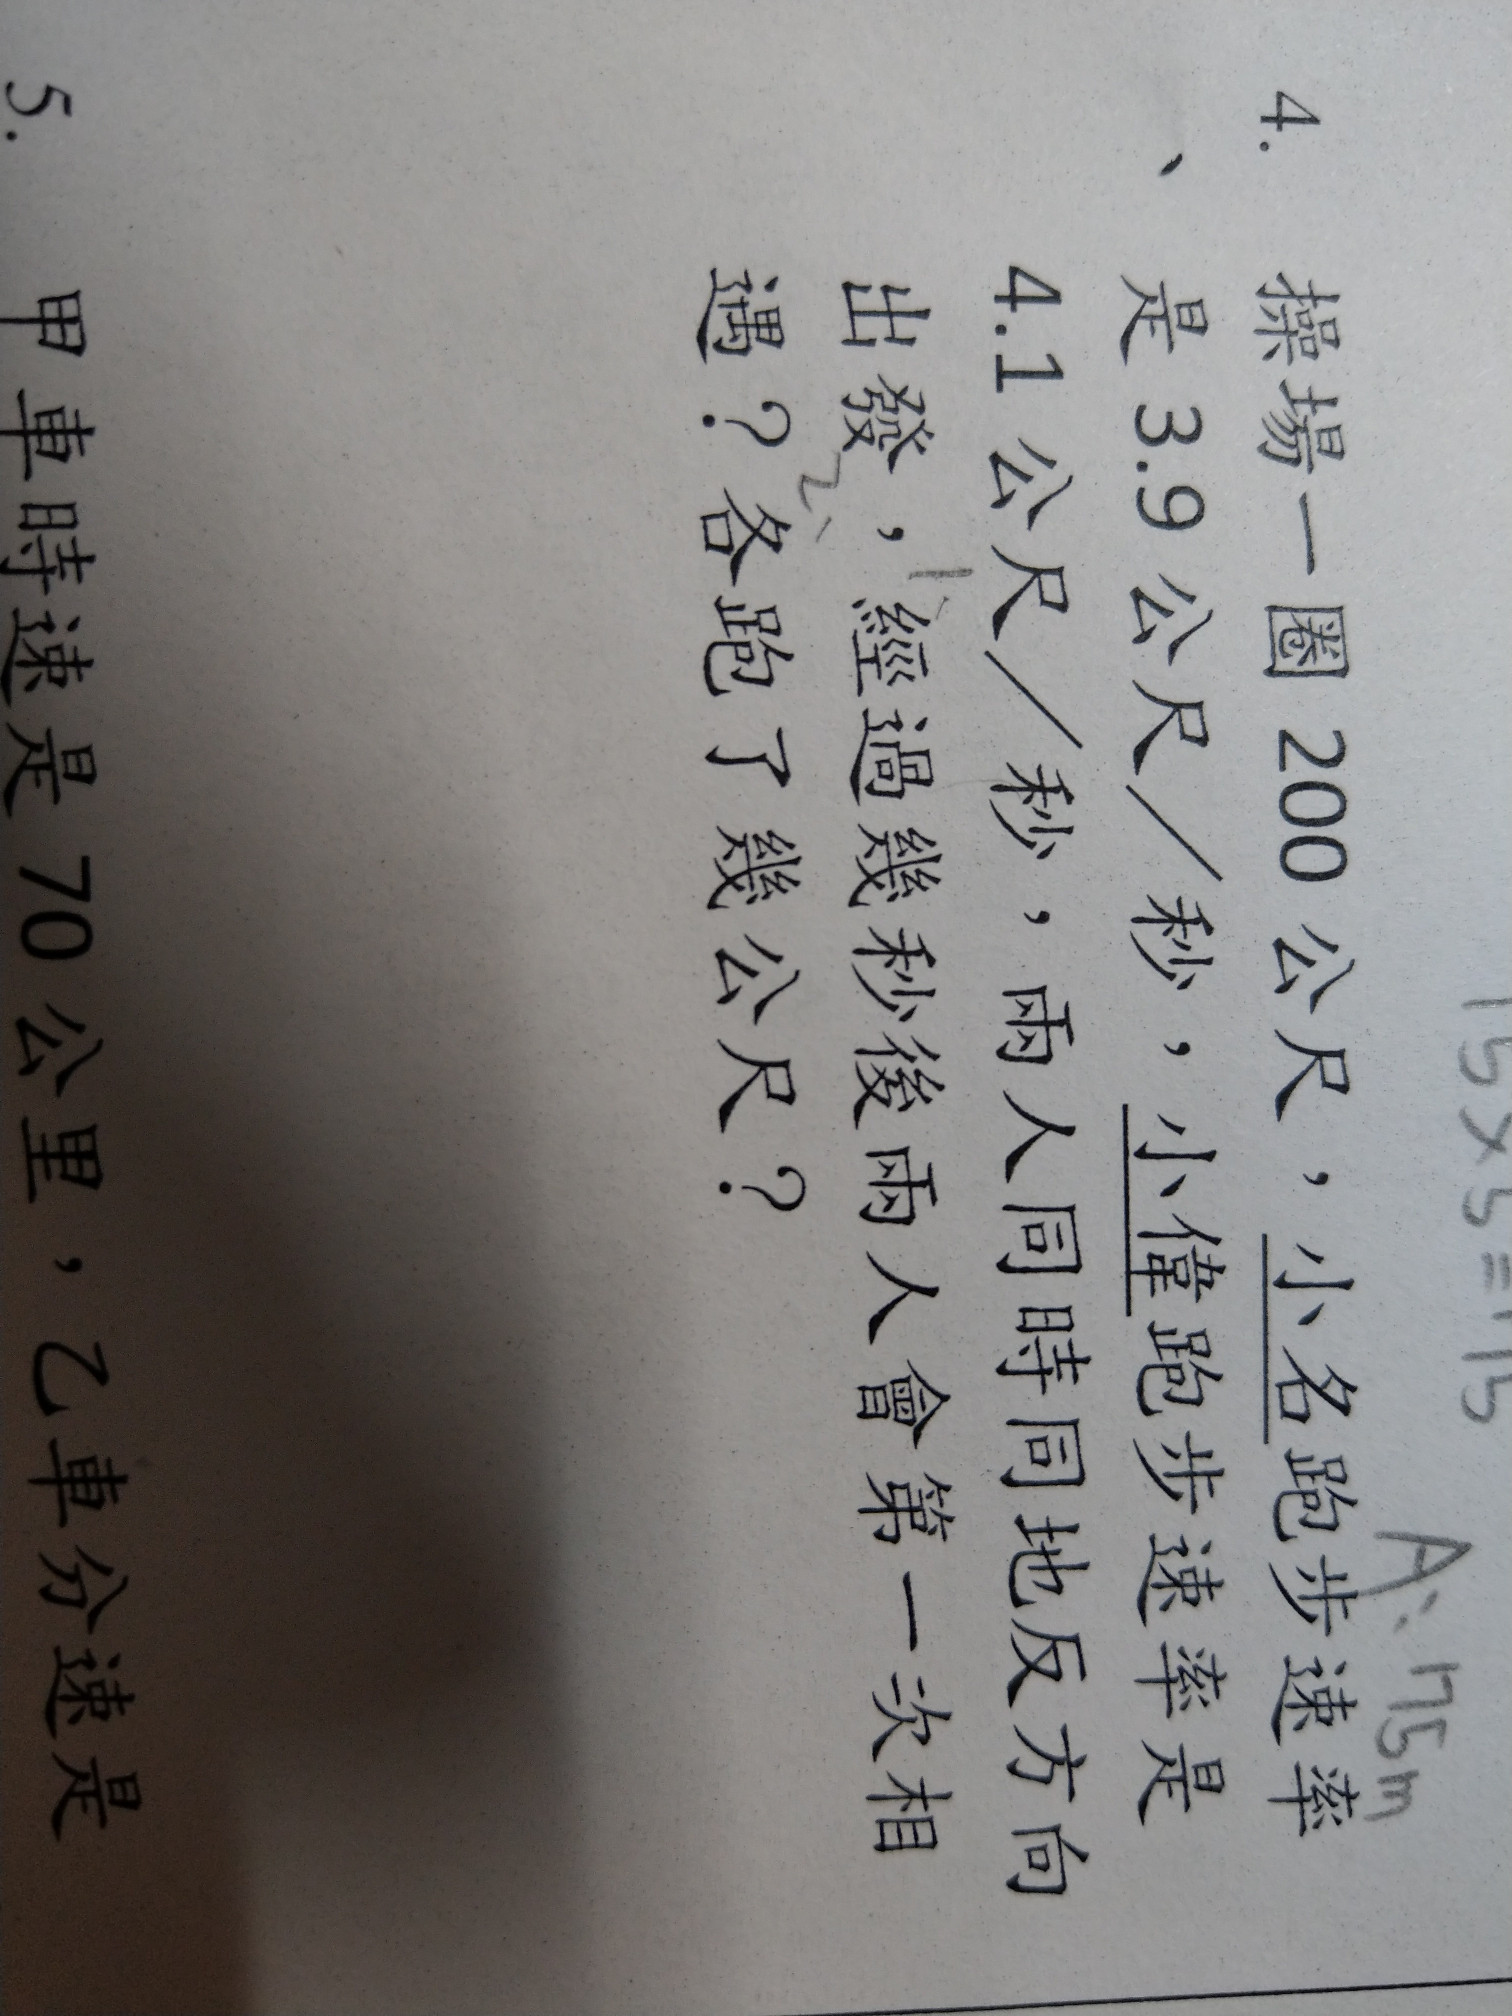 15×5=75
A:175m
4. 操場一圈 200 公尺，小名跑步速率
、是 3.9 公尺／秒，小偉跑步速率是
4.1 公尺／秒，兩人同時同地反方向
出發，經過幾秒後兩人會第一次相
遇？各跑了幾公尺？
5. 甲車時速是 70 公里，乙車分速是